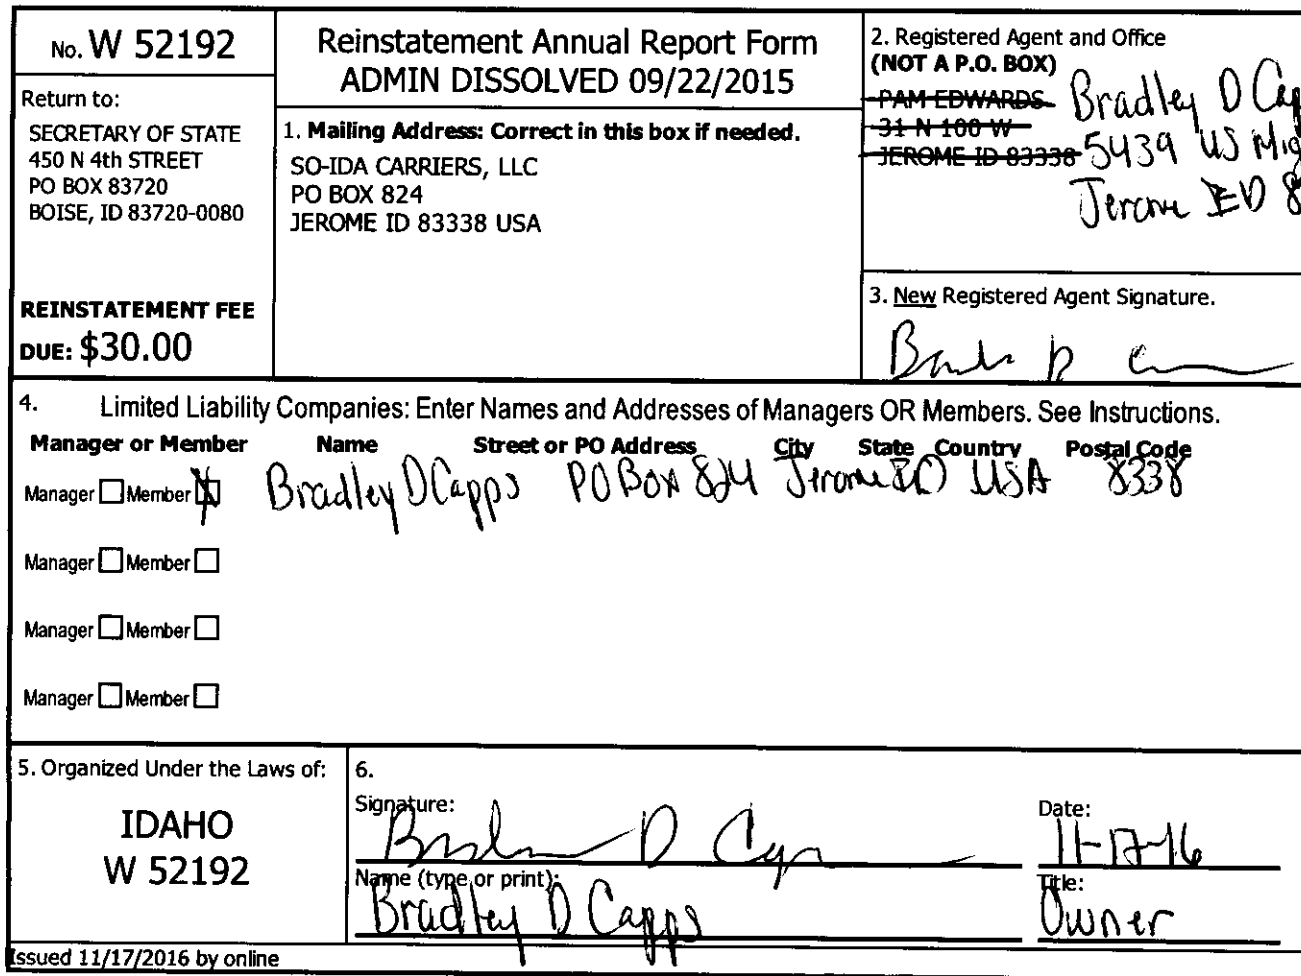 No. W 52192
Return to:
SECRETARY OF STATE
450 N 4th STREET
PO BOX 83720
BOISE, ID 83720-0080
REINSTATEMENT FEE
DUE: $30.00
Reinstatement Annual Report Form
ADMIN DISSOLVED 09/22/2015
1. Mailing Address: Correct in this box if needed.
SO-IDA CARRIERS, LLC
PO BOX 824
JEROME ID 83338 USA
2. Registered Agent and Office
(NOT A P.O. BOX)
PAM EDWARDS
31 N 100 W
JEROME ID 83338
Bradley D Cap
5439 US
Jerome ID 8
3. New Registered Agent Signature.
4. Limited Liability Companies: Enter Names and Addresses of Managers OR Members. See Instructions.
Manager or Member Name Street or PO Address City State Country Postal Code
Manager Member Bradley D Capps PO Box 824 Jerome ID USA 8338
Manager Member
Manager Member
Manager Member
5. Organized Under the Laws of:
IDAHO
W 52192
6.
Signature:
Date:
11-17-16
Name (type or print):
Bradley D Capps
Title:
Owner
Issued 11/17/2016 by online